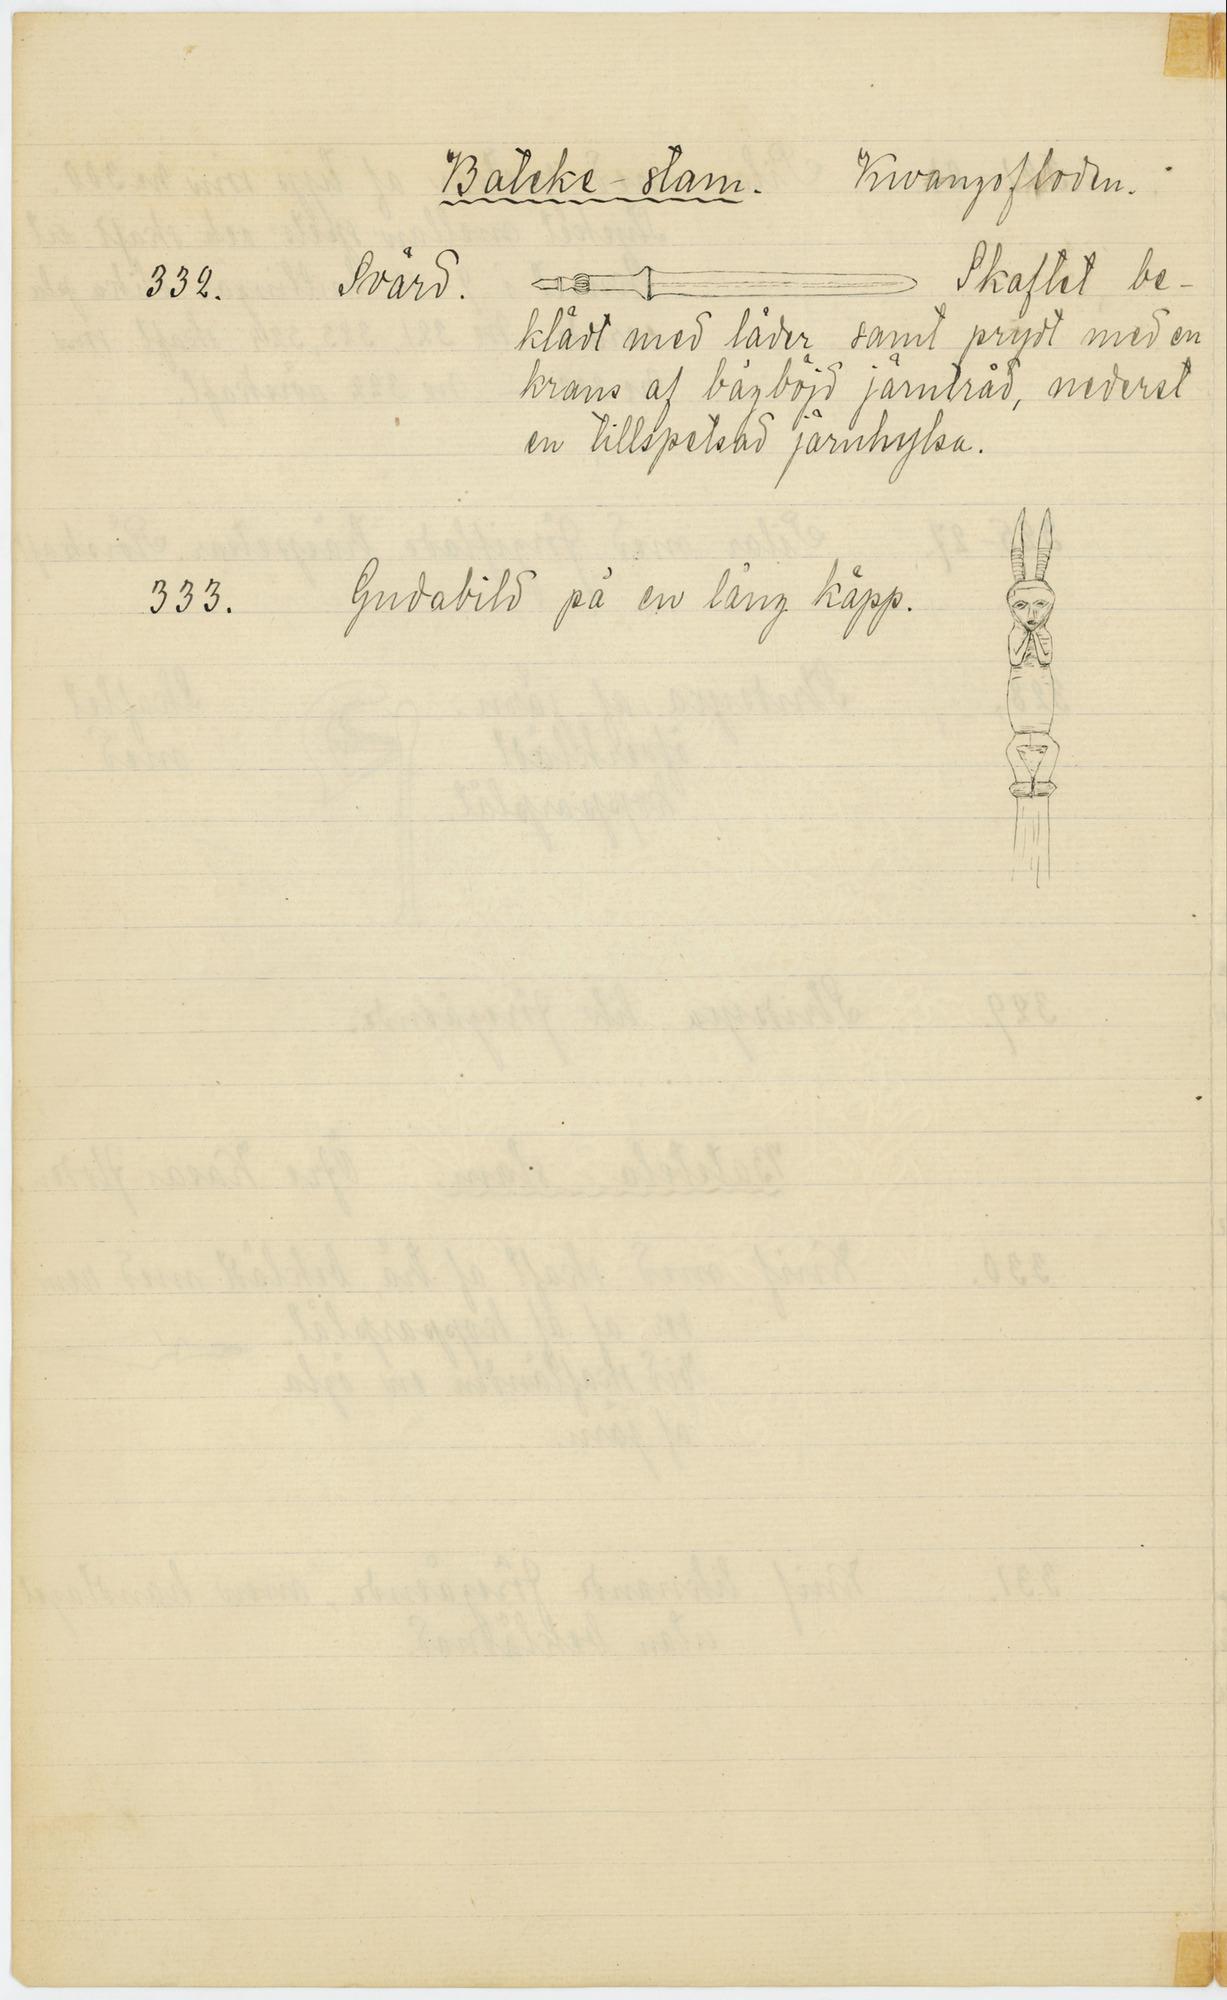 Bateke-stam. Kwangofloden.
332. Svärd. Skaftet be-
klädt med läder samt prydt med en
krans af bågböjd järntråd, nederst
en tillspetsad järnhylsa.
333. Gudabild på en lång käpp.